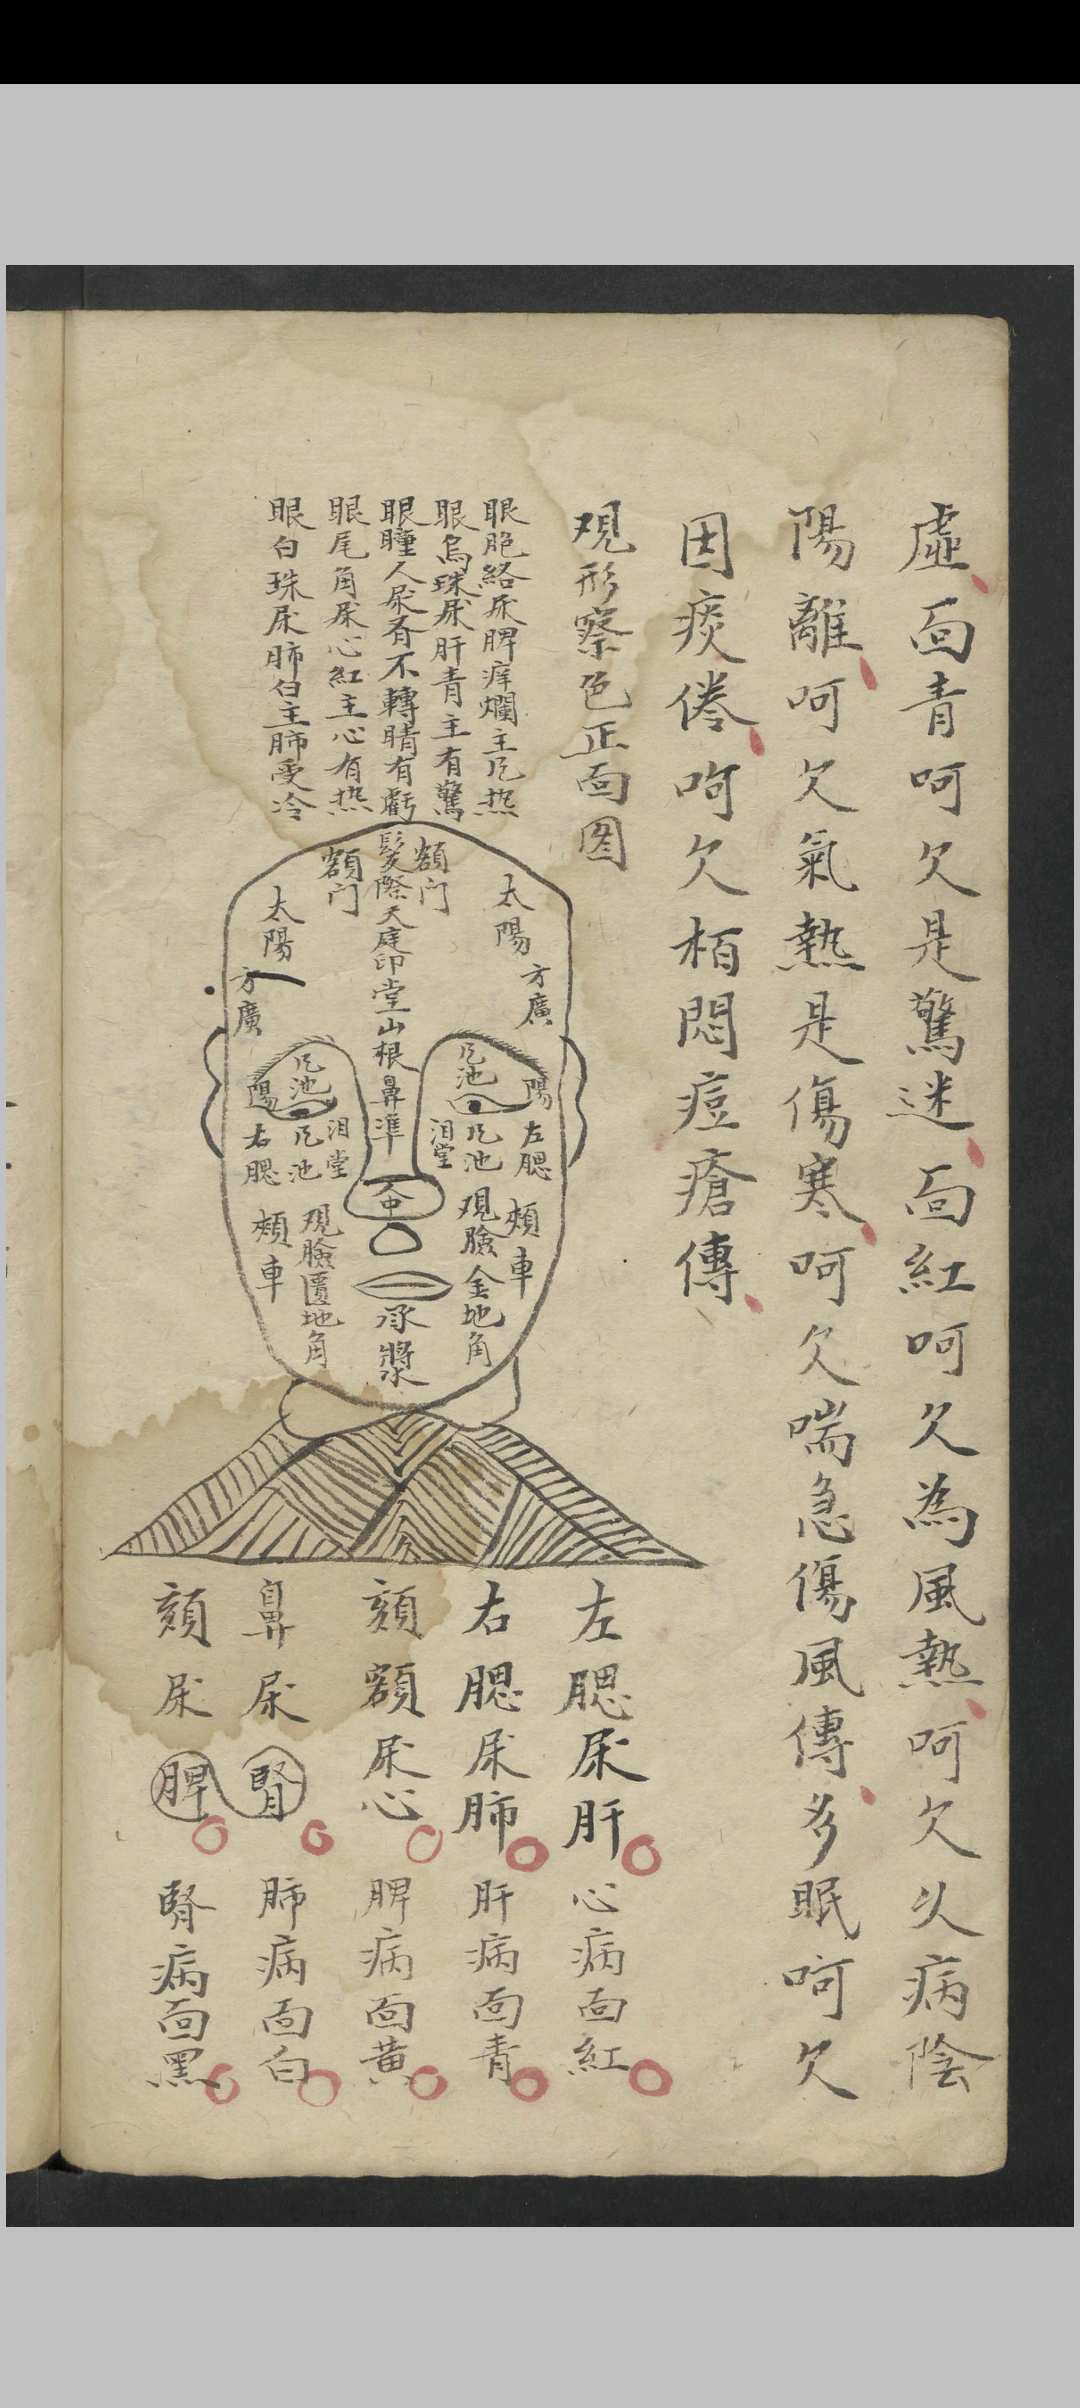 虛面青呵欠是驚迷面紅呵欠為風熱呵欠久病陰
陽離呵欠氣熱是傷寒呵欠喘急傷風傳多眠呵欠
因痰倦呵欠栢悶痘瘡傳
观形察色正面图
眼胞絡尿脾痒爛主风热
眼烏珠尿肝青主有驚
眼瞳人尿肾不轉睛有虧
眼尾角尿心紅主心有热
眼白珠尿肺白主肺受冷
額门
髮際天庭印堂山根鼻準
額门
太陽
太陽
方廣
方廣
风池
风池
陽
陽
左腮
风池
泪堂
泪堂
风池
右腮
頰車
观臉金地角
人中
承漿
观臉匱地角
頰車
左腮尿肝
右腮尿肺
頦額尿心
鼻尿腎
頦尿脾
心病面紅
肝病面青
脾病面黄
肺病面白
腎病面黑